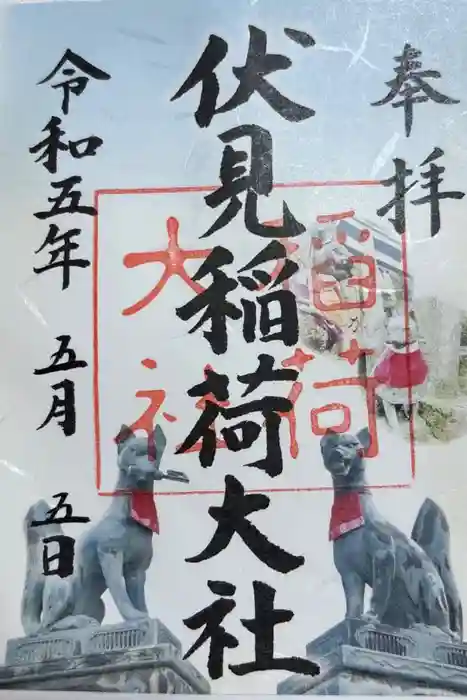 奉拝
伏見稲荷大社
令和五年 五月 五日
稲荷
大社